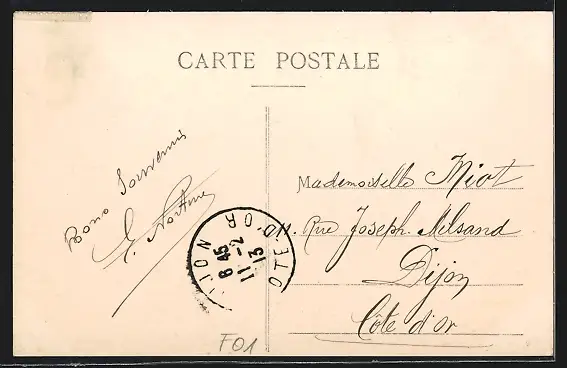 CARTE POSTALE
Bons Souvenirs
E.
Mademoiselle Miot
11. Rue Joseph. Milsand
Dijon
Côte d'or
DIJON
8 45
11-2
13
COTE D'OR
F01